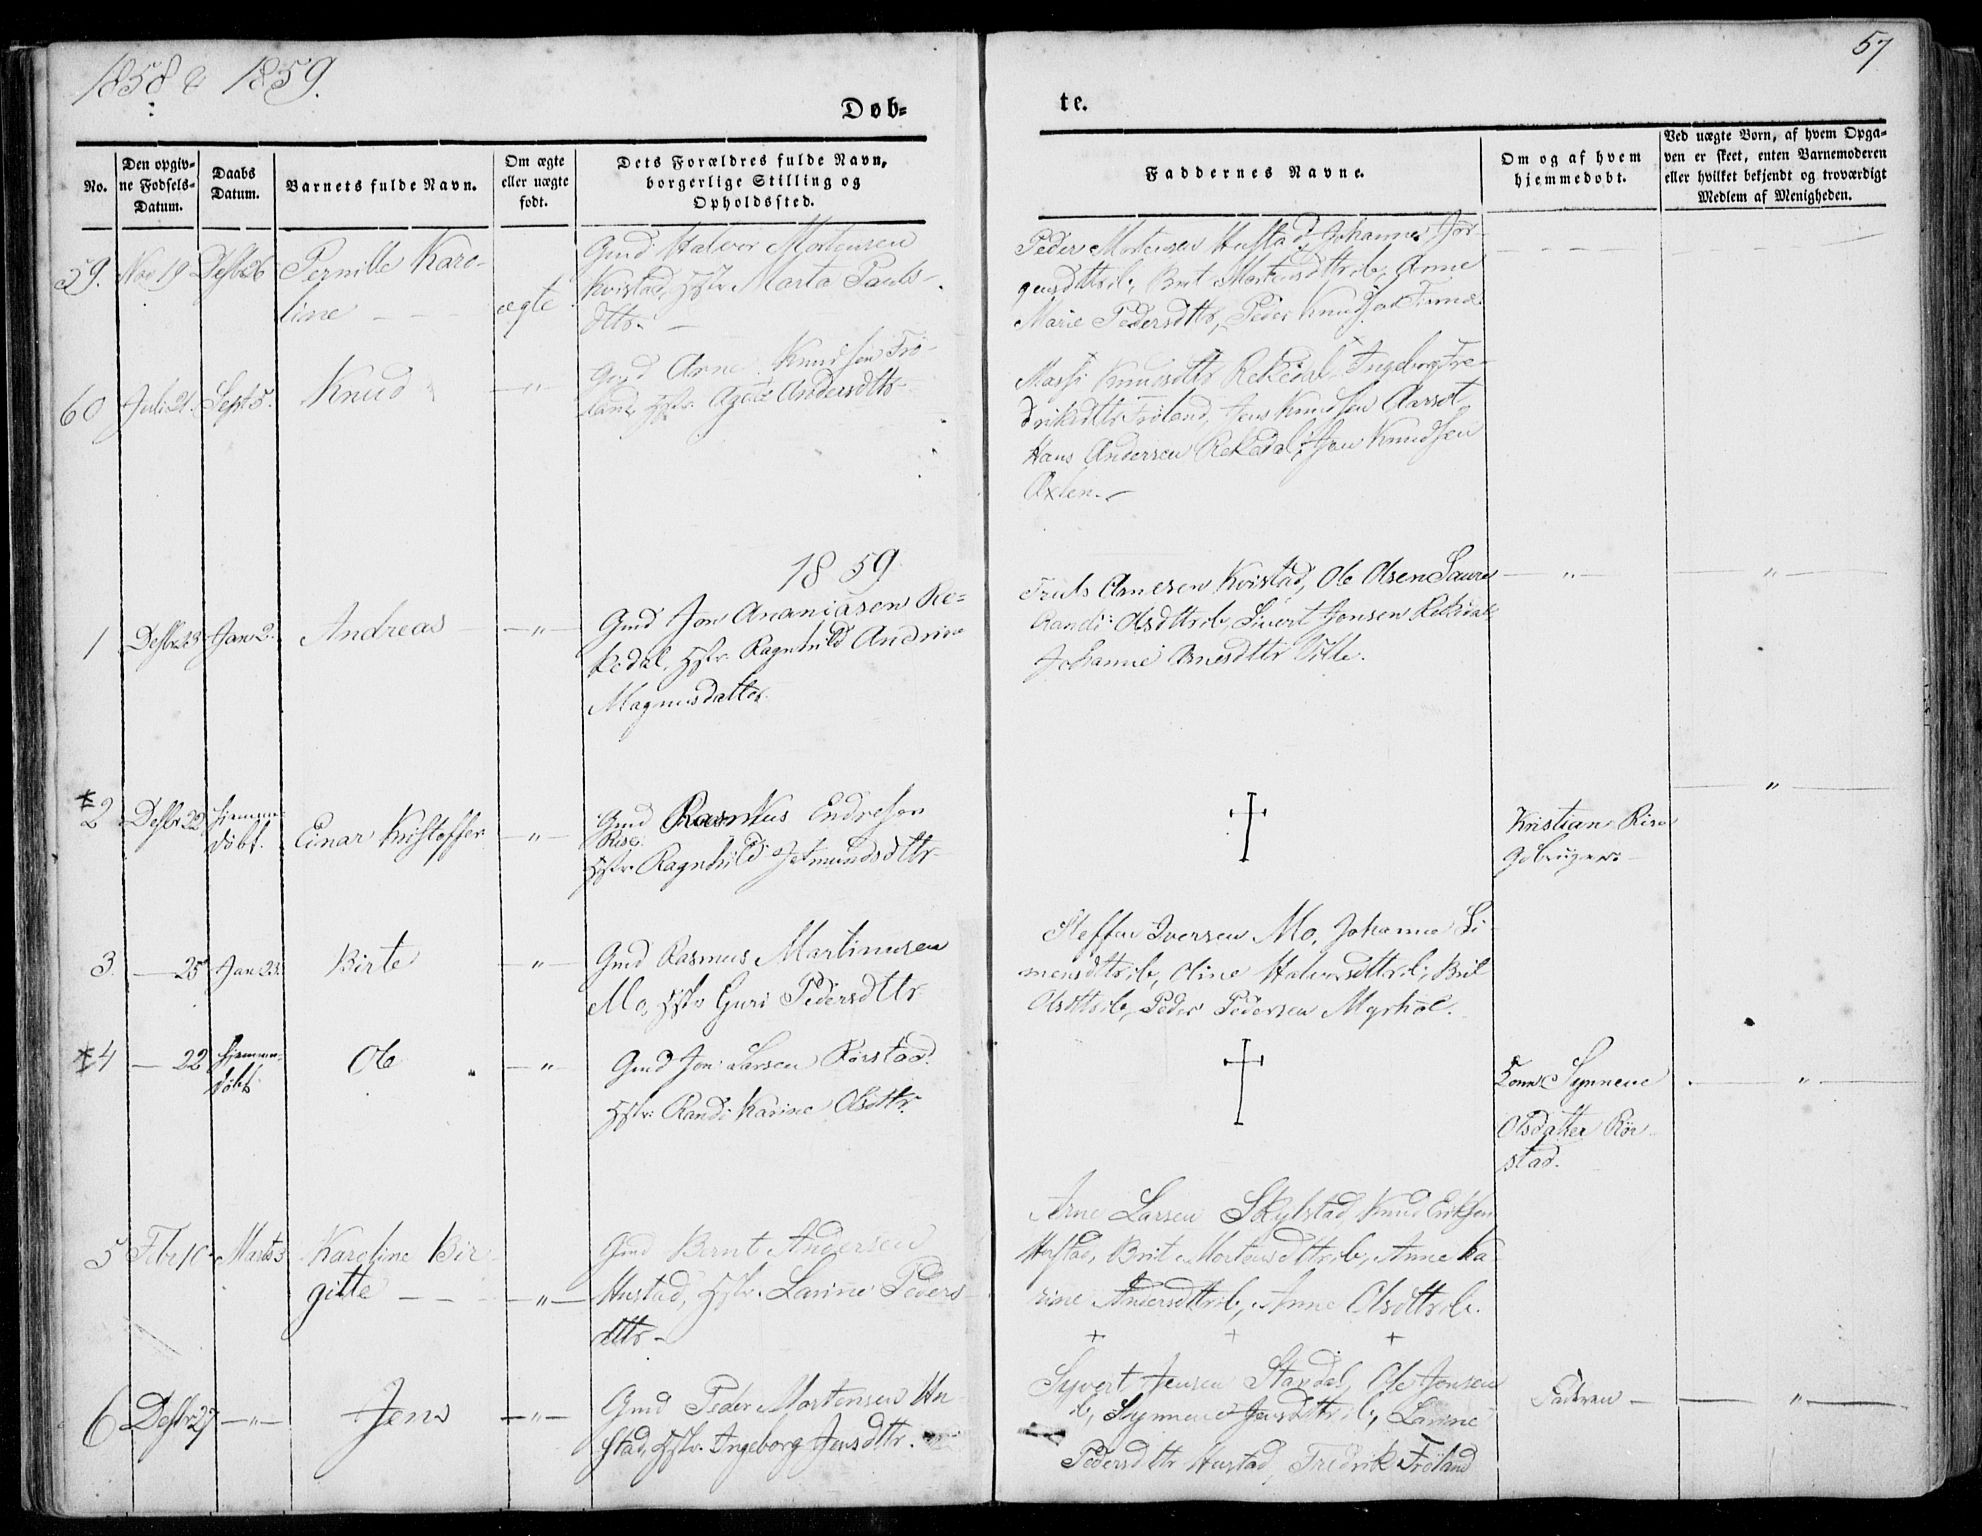 1858 & 1859.
57
Døb-
te.
No.
Den opgiv-
ne Fødsels-
Datum.
Daabs
Datum.
Barnets fulde Navn.
Om ægte
eller uægte
født.
Dets Forældres fulde Navn,
borgerlige Stilling og
Opholdssted.
Faddernes Navne.
Om og af hvem
hjemmedøbt.
Ved uægte Børn, af hvem Opga-
ven er skeet, enten Barnemoderen
eller hvilket bekjendt og troværdigt
Medlem af Menigheden.
59. Nov 19 Desbr 26 Pernille Karo-
line — — ægte
Gmd Halvor Mortensen
Kvistad, Hstr Marta Pauls-
dttr. —
Peder Mortensen Hustad, Johanne Jør-
gensdttr ib, Brit Mortensdttr ib, Anne
Marie Pedersdttr, Peder Knudsen
60 Juli 21. Sept 5. Knud — " —
Gmd Arne Knudsen Frø-
land, Hstr. Andersdttr
Knudsdttr Rekkedal, Ingeborg Fre-
drikdttr Frøland, Jens Knudsen Aarset,
Hans Andersen Rekkedal, Knudsen
1859.
1 Desbr 23 Jan 2. Andreas — " —
Gmd Jon Ananiasen Re-
kedal, Hstr. Ragnhild Andrine
Magnusdatter
Truls Arnesen Kvistad, Ole Olsen Saure
Randi Olsdttr ib, Sivert Jonsen Rekdal,
Johanne Arnesdttr
— " — — " —
*2 Desbr 22 hjemme-
døbt. Einar Kristoffer — " —
Gmd Rasmus Endresen
Rise.
Hstr. Ragnhild Jetmundsdttr
†
Kristian Rise
Gbruger.
— " —
3. — 25 Jan 23. Birte — " —
Gmd Rasmus Martinusen
Mo, Hstr Guri Pedersdttr
Steffen Iversen Mo, Johanne Si-
mensdttr ib, Oline Halvorsdttr ib, Brit
Olsdttr ib, Peder Pedersen Myrhol.
*4 — 22 hjemme-
døbt. Ole — " —
Gmd Jon Larsen Rørstad.
Hstr: Randi Karine Olsdttr:
†
Synneve
Olsdatter Rør-
stad.
— " —
5 Febr 10. Marts 3 Karoline Bir-
gitte — — — " —
Gmd Bernt Andersen
Hustad, Hstr. Larine Peders-
dttr —
Arne Larsen Skylstad, Knud Eriksen
Hustad, Brit Mortensdttr ib, Anne Ka-
rine Andersdttr ib, Anne Olsdttr ib.
+ + +
6 Desbr 27 — " — Jens — " —
Gmd Peder Mortensen Hu-
stad, Hstr. Ingeborg Jensdttr.
Syvert Jensen Standal, Ole Jensen
ib, Synneve Jensdttr ib, Larine
Pedersdttr Hustad, Fredrik Frøland
Faderen —
— " —